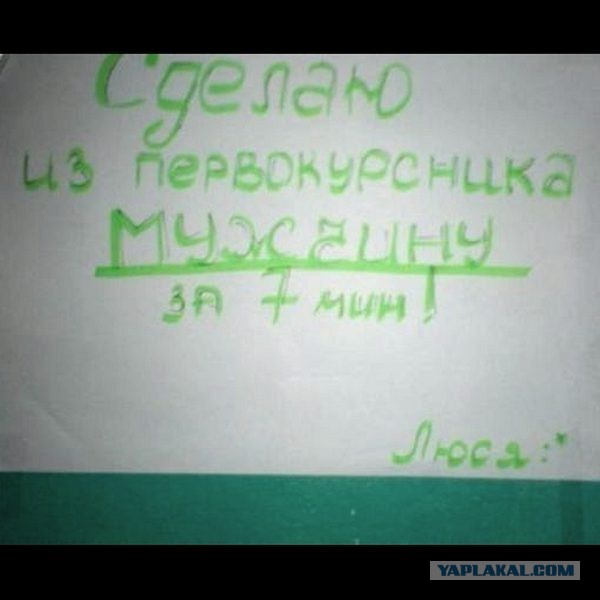 Сделаю
из первокурсника
МУЖЧИНУ
за 7 мин!
Люся :*
YAPLAKAL.COM